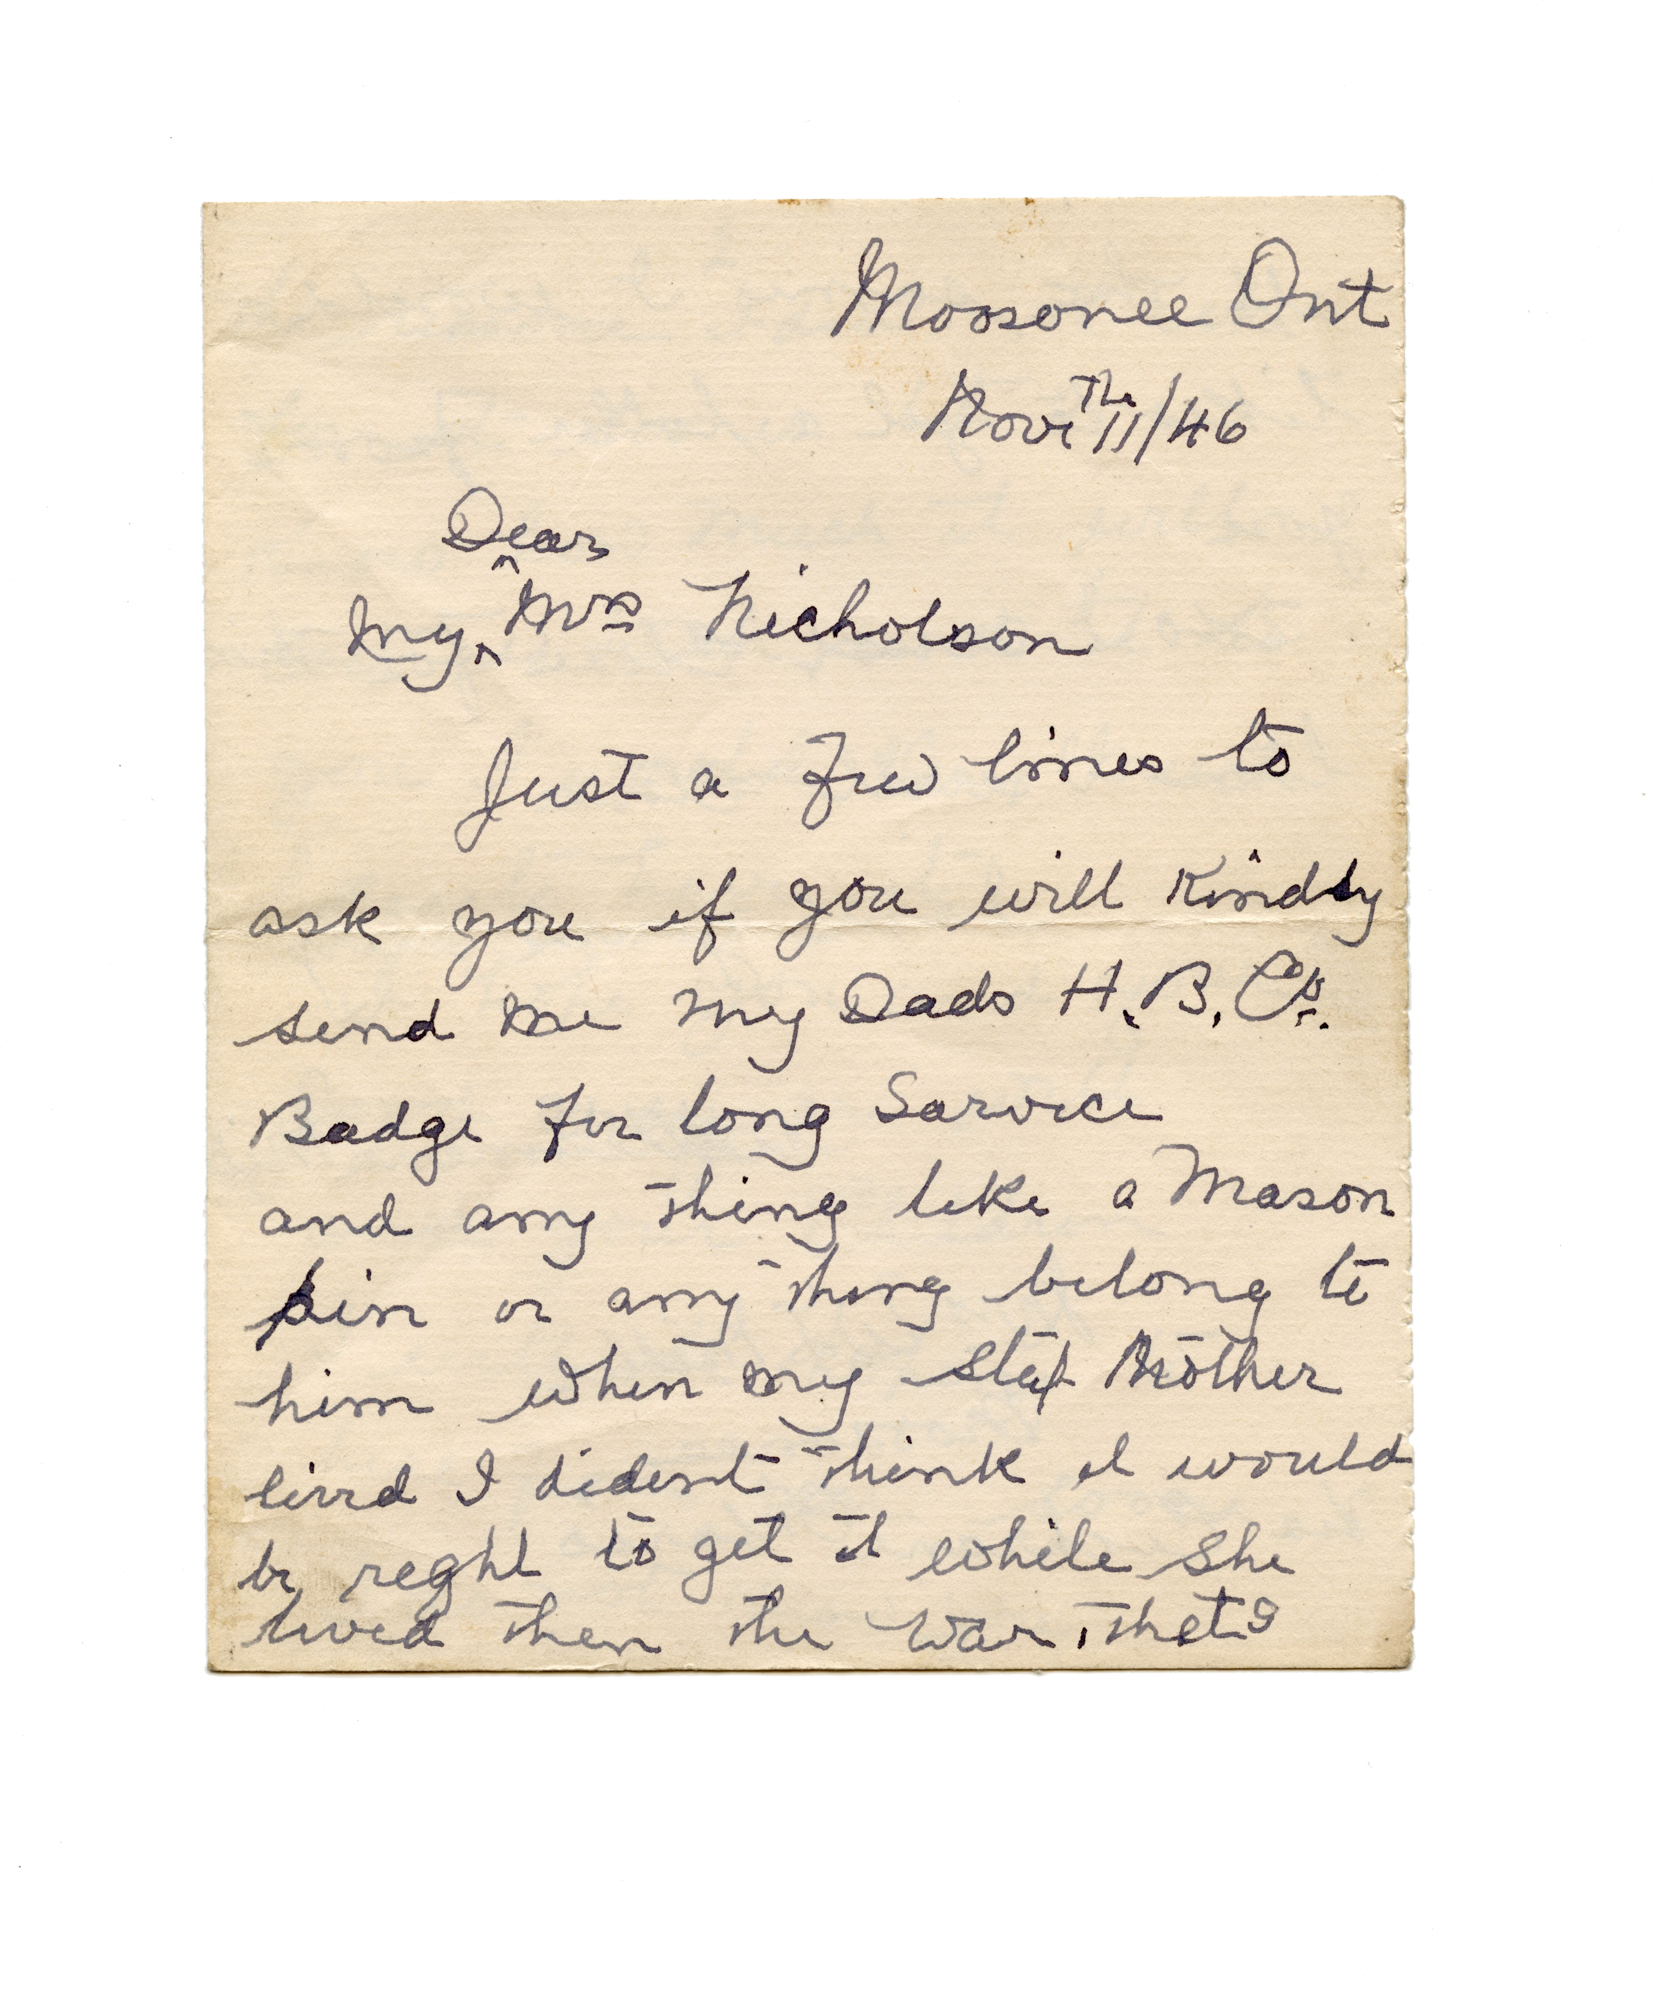 Moosonee Ont
Nov. The 11/46
Dear
My ^ Mrs Nicholson
Just a few lines to
ask you if you will Kindly
send me my Dads H.B.Co.
Badge for long Sarvice
and any thing like a Mason
pin or any thing belong to
him when my Step Mother
lived I dident think it would
be reght to get it while she
lived then the war, that's